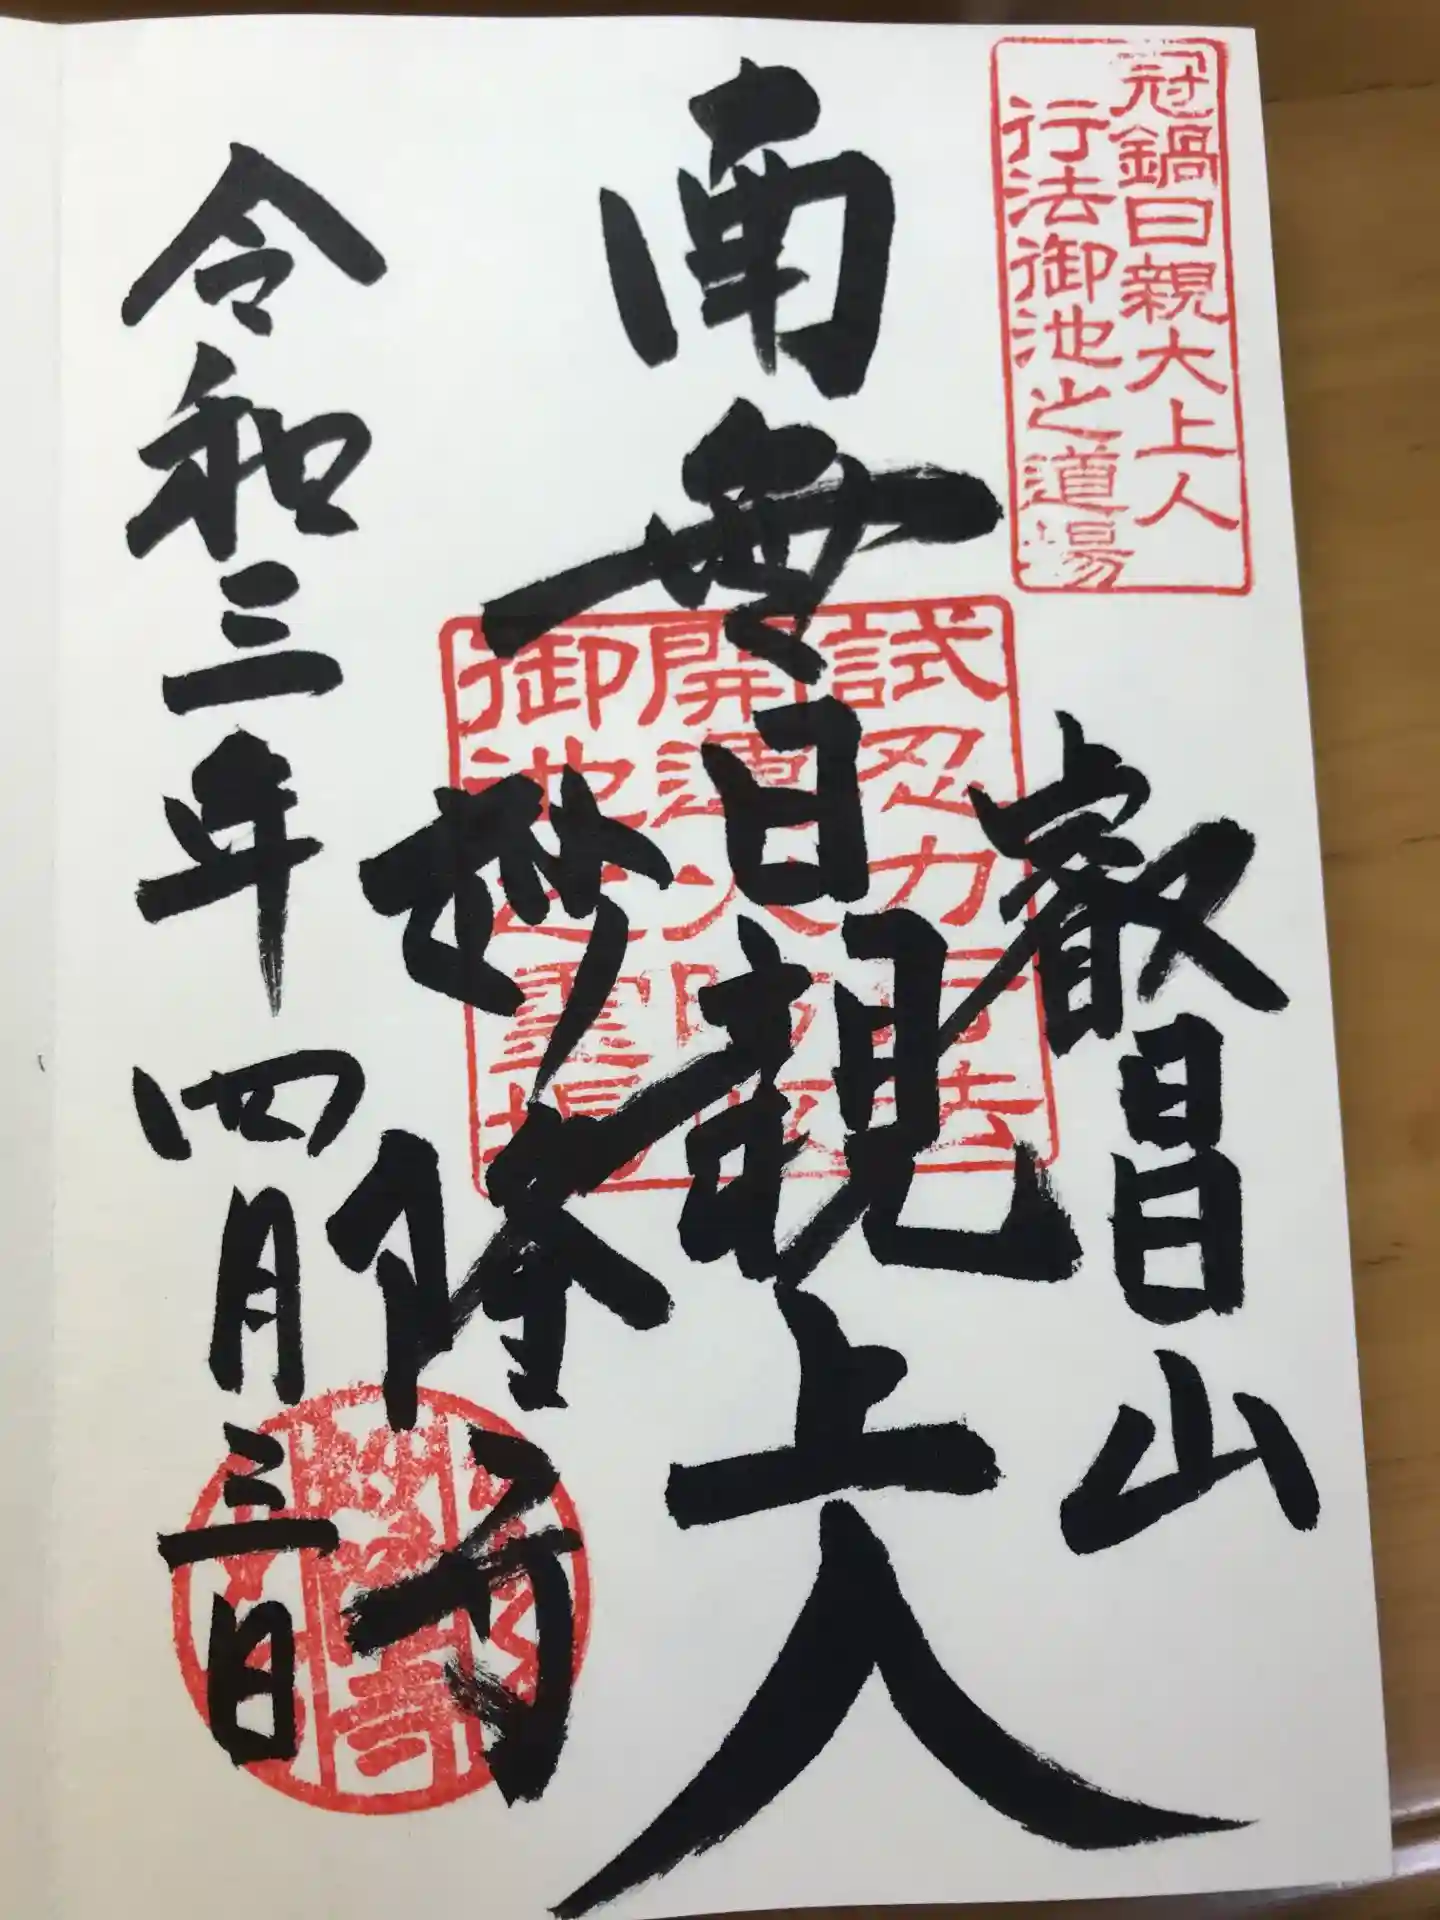 冠鍋日親大上人
行法御池之道場
叡昌山
南無日親上人
試忍力行法
開運
御池之霊場
妙隆寺
令和三年四月三日